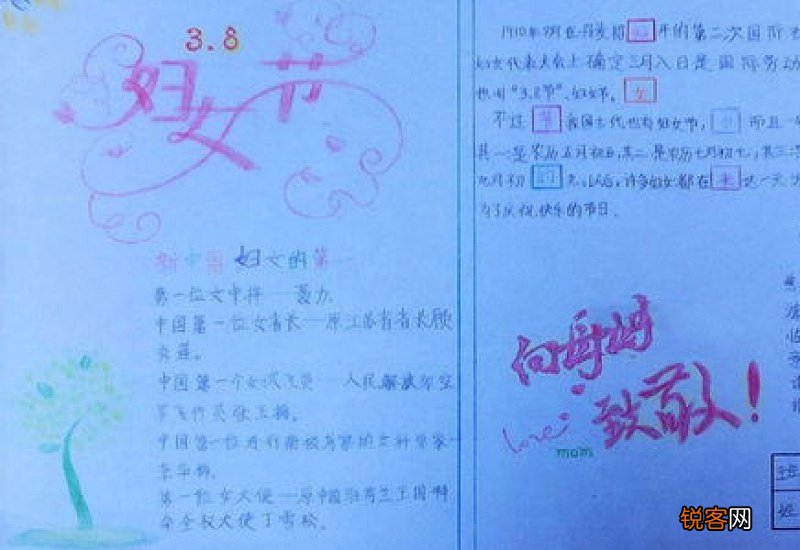 3.8
妇女节
新中国妇女的第一
第一位女中将——聂力
中国第一位女省长——原江苏省省长顾
秀莲。
中国第一个女试飞员——人民解放军空
军飞行员张玉梅。
中国第一位进行南极考察的女科学家—
李华梅。
第一位女大使——原中国驻荷兰王国特
命全权大使丁雪松。
1910年8月在丹麦招 开的第二次国际
妇女代表大会上确定三月八日是国际劳动
"3.8节"、妇女节。女
不过 节 我国古代也有妇女节, 而且一
其一是农历五月初五,其二是农历七月初七,其三
九月初 的 以后,许多妇女都在 来 这一天
为了庆祝快乐的节日。
向母亲
致敬!
love
mom
班
姓
锐客网